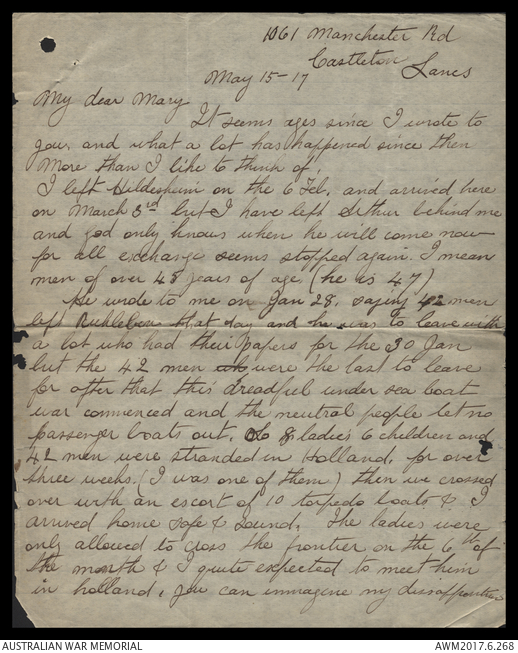 1061 Manchester Rd
Castleton
Lancs
May 15-17
My dear Mary
It seems ages since I wrote to
you, and what a lot has happened since then
More than I like to think of.
I left Hildesheim on the 6 Feb. and arrived here
on March 3rd but I have left Arthur behind me
and god only knows when he will come now
for all exchange seems stopped again. I mean
men of over 45 years of age (he is 47)
He wrote to me on Jan 28. saying 42 men
left Ruhleben that day and he was to leave with
a lot who had their papers for the 30 Jan
but the 42 men were the last to leave
for after that this dreadful under sea boat
war commenced and the neutral people let no
passenger boats out. So 8 ladies 6 children and
42 men were stranded in Holland. for over
three weeks. (I was one of them) then we crossed
over with an escort of 10 torpedo boats & I
arrived home safe & sound. The ladies were
only allowed to cross the frontier on the 6th of
the month & I quite expected to meet him
in holland, you can immagine my
AUSTRALIAN WAR MEMORIAL
AWM2017.6.268